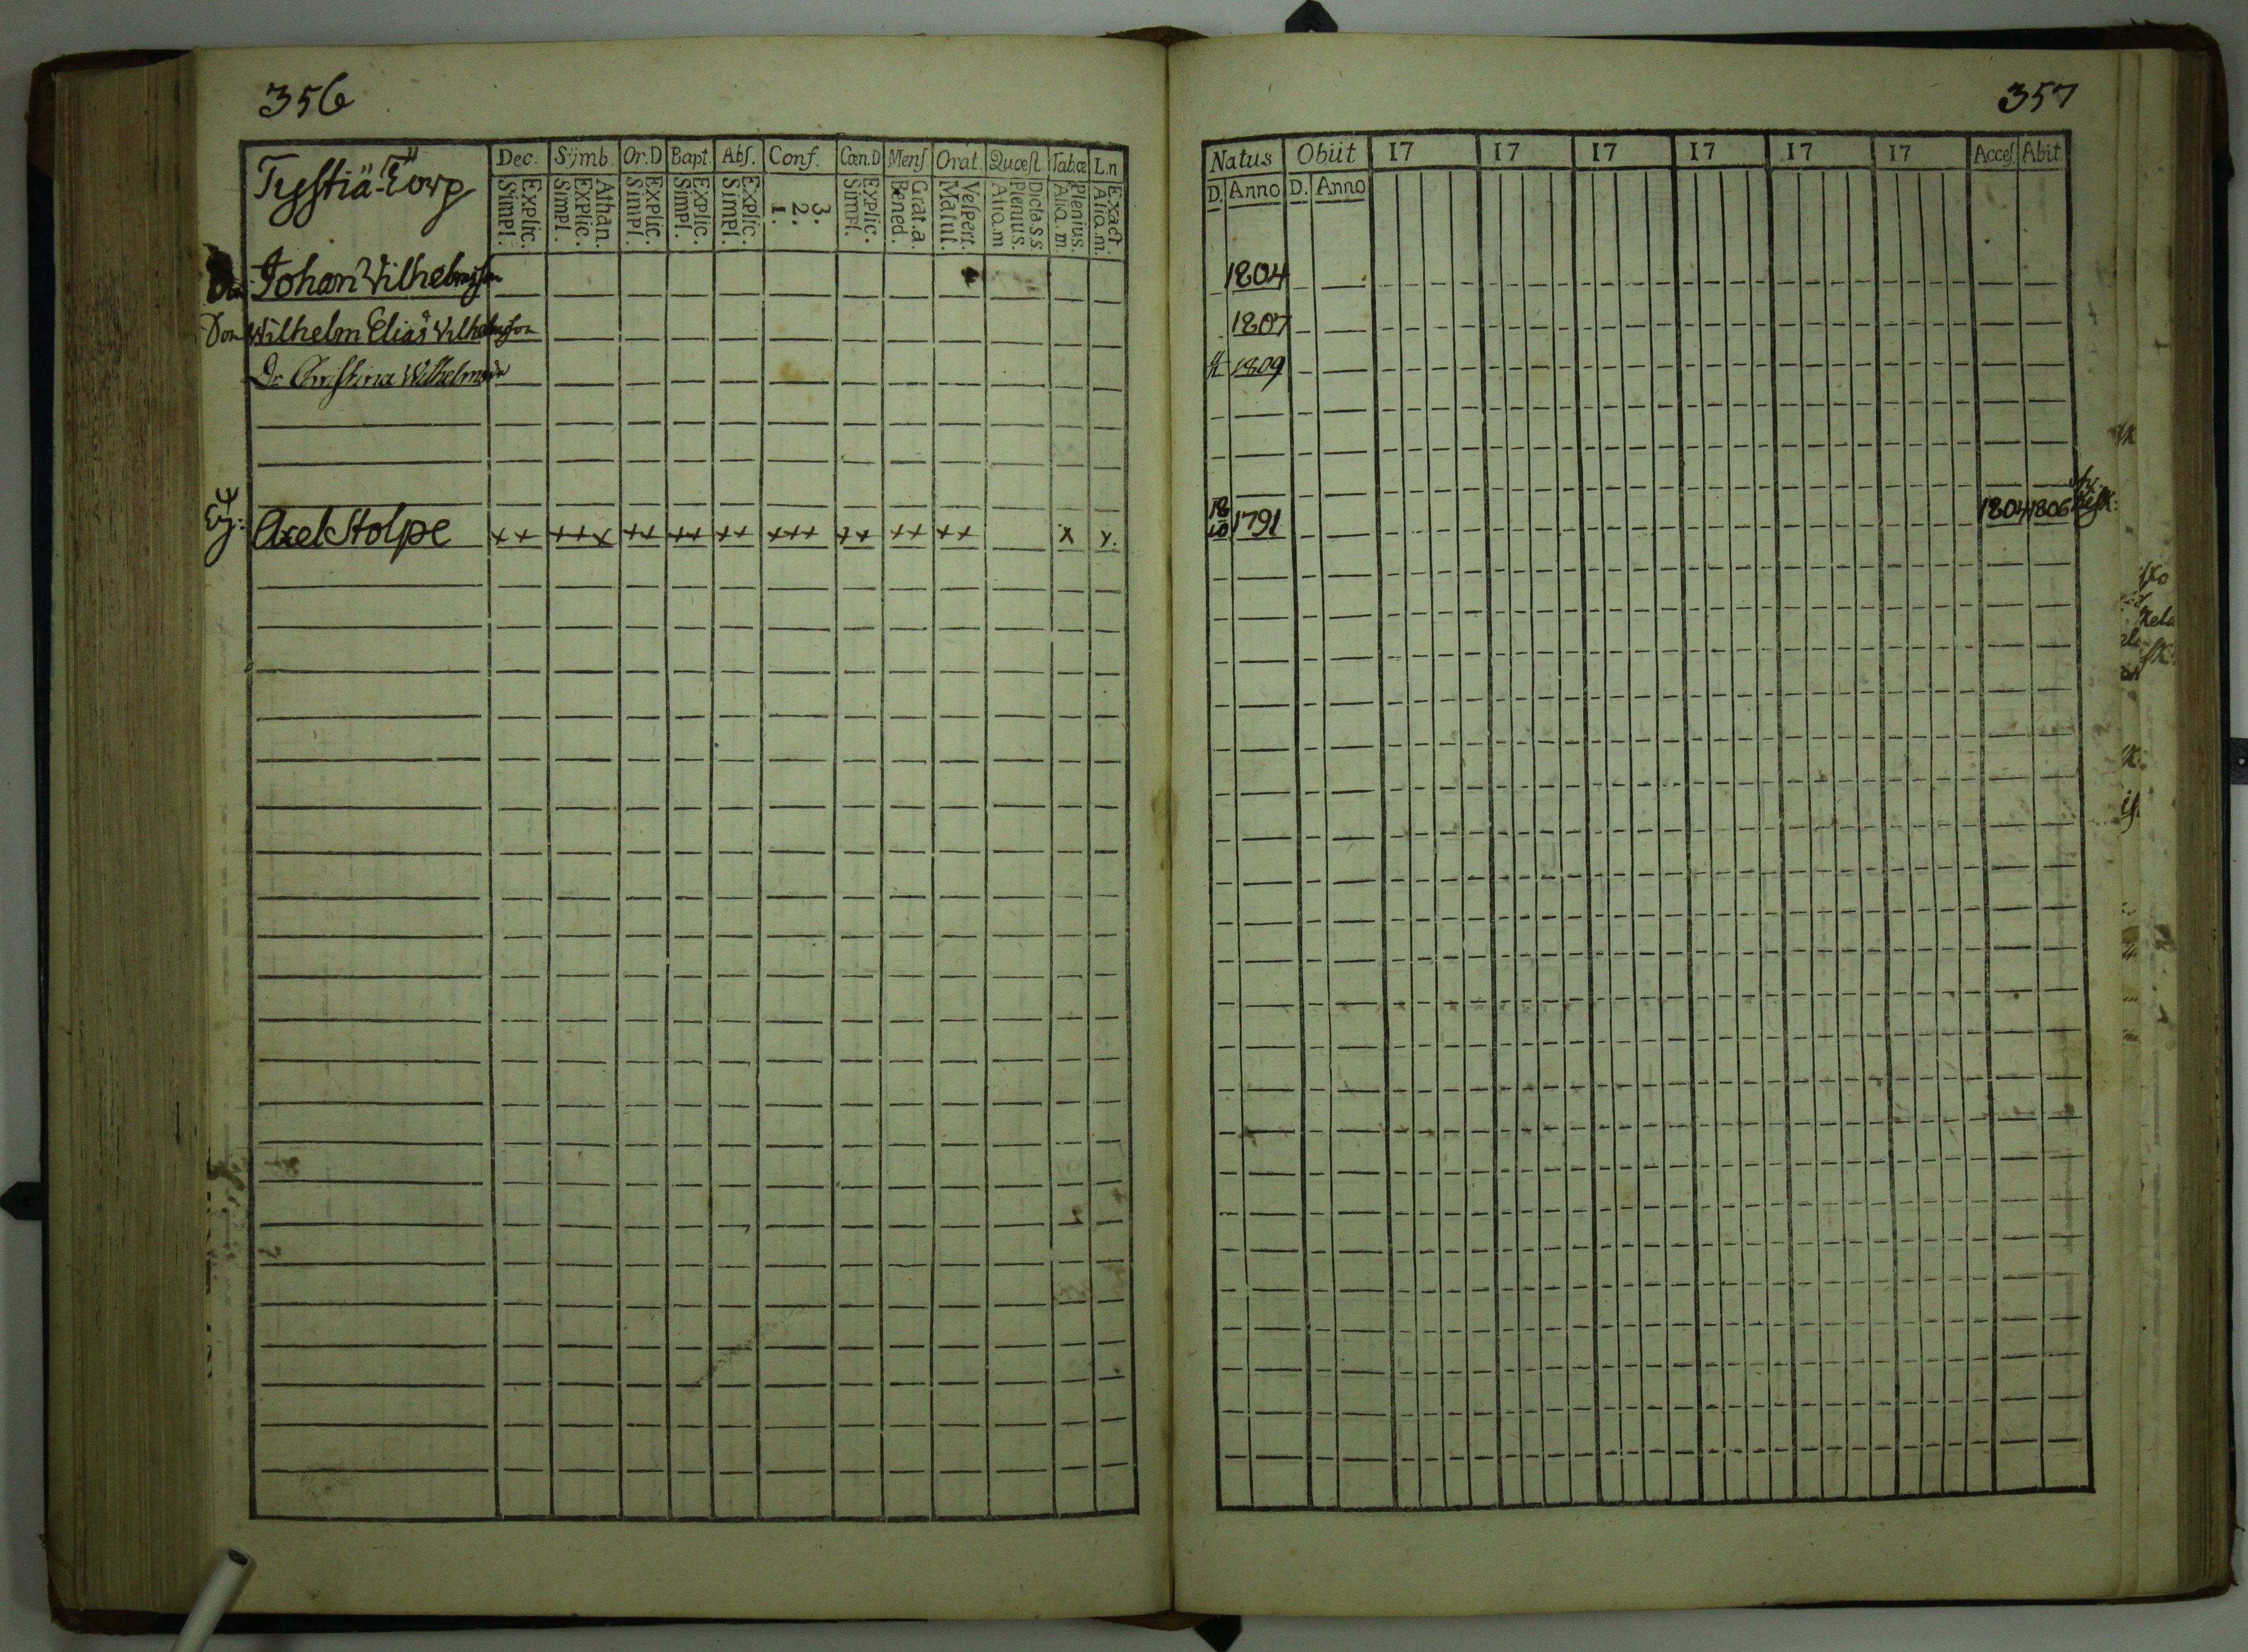 356
Dec. Sÿmb. Or.D Bapt. Abſ. Conf. Cœn.D Menſ Orat. Quœſt Tab.œ L.n
Tyſtiä-Torp
Explic. Simpl. Athan. Explic. Simpl. Explic. Simpl. Explic. Simpl. Explic. Simpl. 3. 2. 1. Explic. Simpl. Grat.a. Bened. Veſpert. Matut. Dicta.S.S. Plenius. Aliq.m Plenius. Aliq.m. Exact. Aliq.m.
Johan Vilhelmsſon
Don Wilhelm Elias Vilhelmsſon
Dr Christina Wilhelmsdr
Axel Stolpe ++ +++ ++ ++ ++ +++ ++ ++ ++ x x.
357
Natus Obiit 17 17 17 17 17 17 Acceſ. Abit.
D. Anno D. Anno
1804
1807
1809
18/10 1791 1804 1806